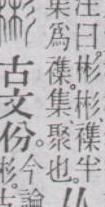 注曰。彬彬。襍半
爲襍。集聚也。
古文份。今論
彬。古